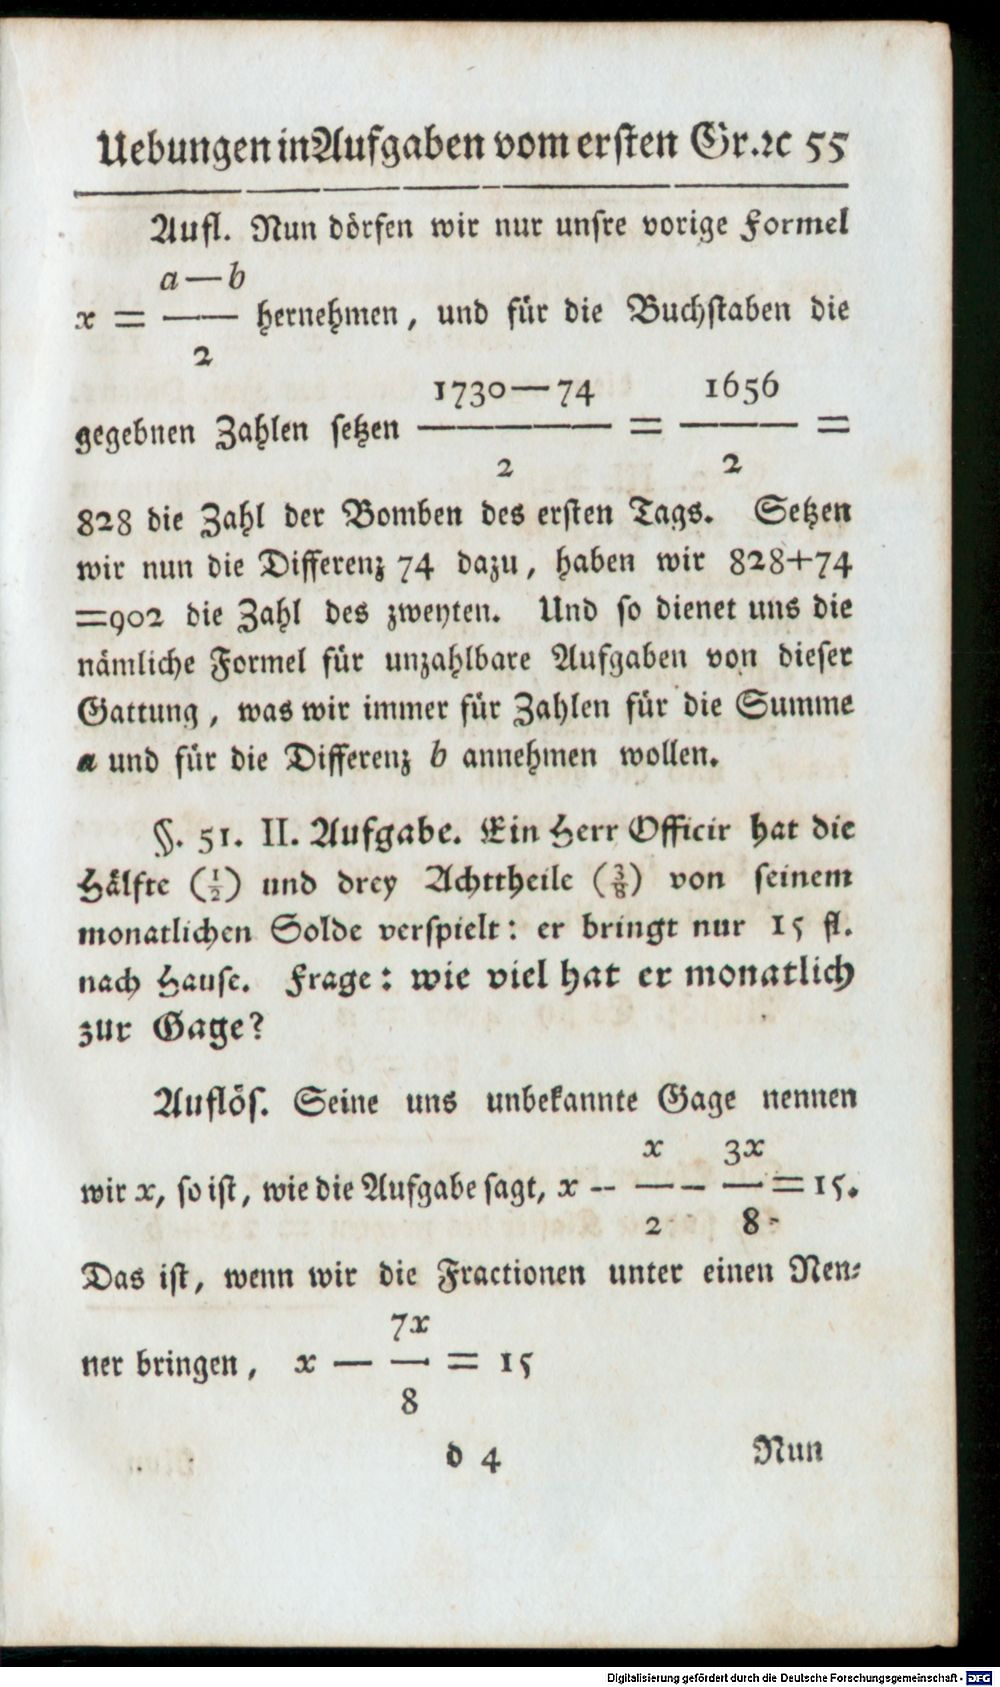 Uebungen in Aufgaben vom ersten Gr. ꝛc 55
Aufl. Nun dörfen wir nur unsre vorige Formel
x = (a — b)/2 hernehmen, und für die Buchstaben die
gegebnen Zahlen setzen (1730 — 74)/2 = 1656/2 =
828 die Zahl der Bomben des ersten Tags. Setzen
wir nun die Differenz 74 dazu, haben wir 828+74
=902 die Zahl des zweyten. Und so dienet uns die
nämliche Formel für unzahlbare Aufgaben von dieser
Gattung, was wir immer für Zahlen für die Summe
a und für die Differenz b annehmen wollen.
§. 51. II. Aufgabe. Ein Herr Officir hat die
Hälfte (1/2) und drey Achttheile (3/8) von seinem
monatlichen Solde verspielt: er bringt nur 15 fl.
nach Hause. Frage: wie viel hat er monatlich
zur Gage?
Auflös. Seine uns unbekannte Gage nennen
wir x, so ist, wie die Aufgabe sagt, x -- x/2 -- 3x/8 = 15.
Das ist, wenn wir die Fractionen unter einen Nen-
ner bringen, x — 7x/8 = 15
d 4 Nun
Digitalisierung gefördert durch die Deutsche Forschungsgemeinschaft - DFG